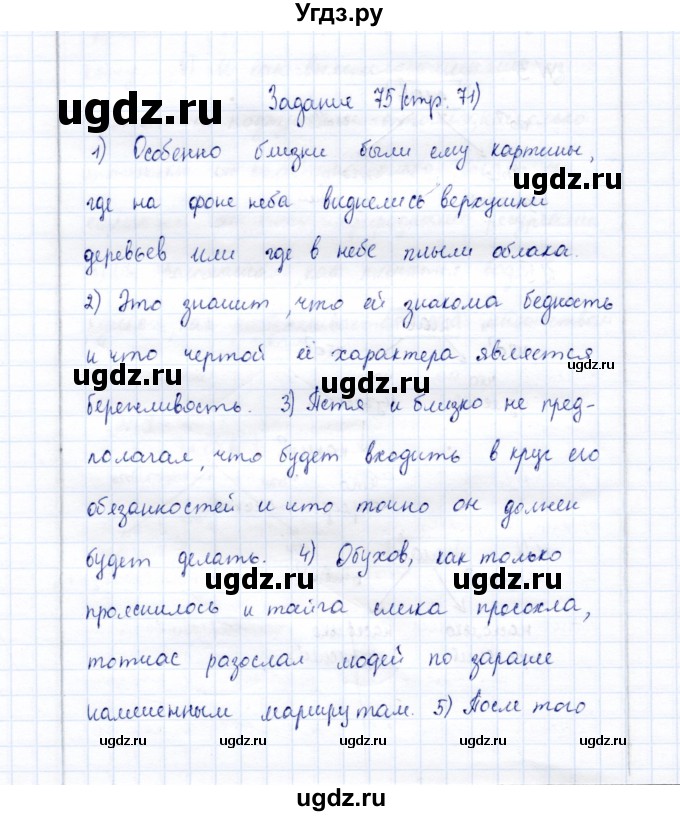 Угдз.ру
Задание 75 (стр. 71)
ugdz.ru
1) Особенно близки были ему картины,
ugdz.ru
где на фоне неба виднелись верхушки
деревьев или где в небе плыли облака.
ugdz.ru
2) Это значит, что ей знакома бедность
и что чертой её характера является
ugdz.ru
ugdz.ru
бережливость. 3) Петя и близко не пред-
полагал, что будет входить в круг его
ugdz.ru
обязанностей и что точно он должен
будет делать. 4) Обухов, как только
ugdz.ru
ugdz.ru
прояснилось и тайга слегка просохла,
тотчас разослал людей по заранее
намеченным маршрутам. 5) После того
ugdz.ru ugdz.ru ugdz.ru ugdz.ru ugdz.ru
ugdz.ru